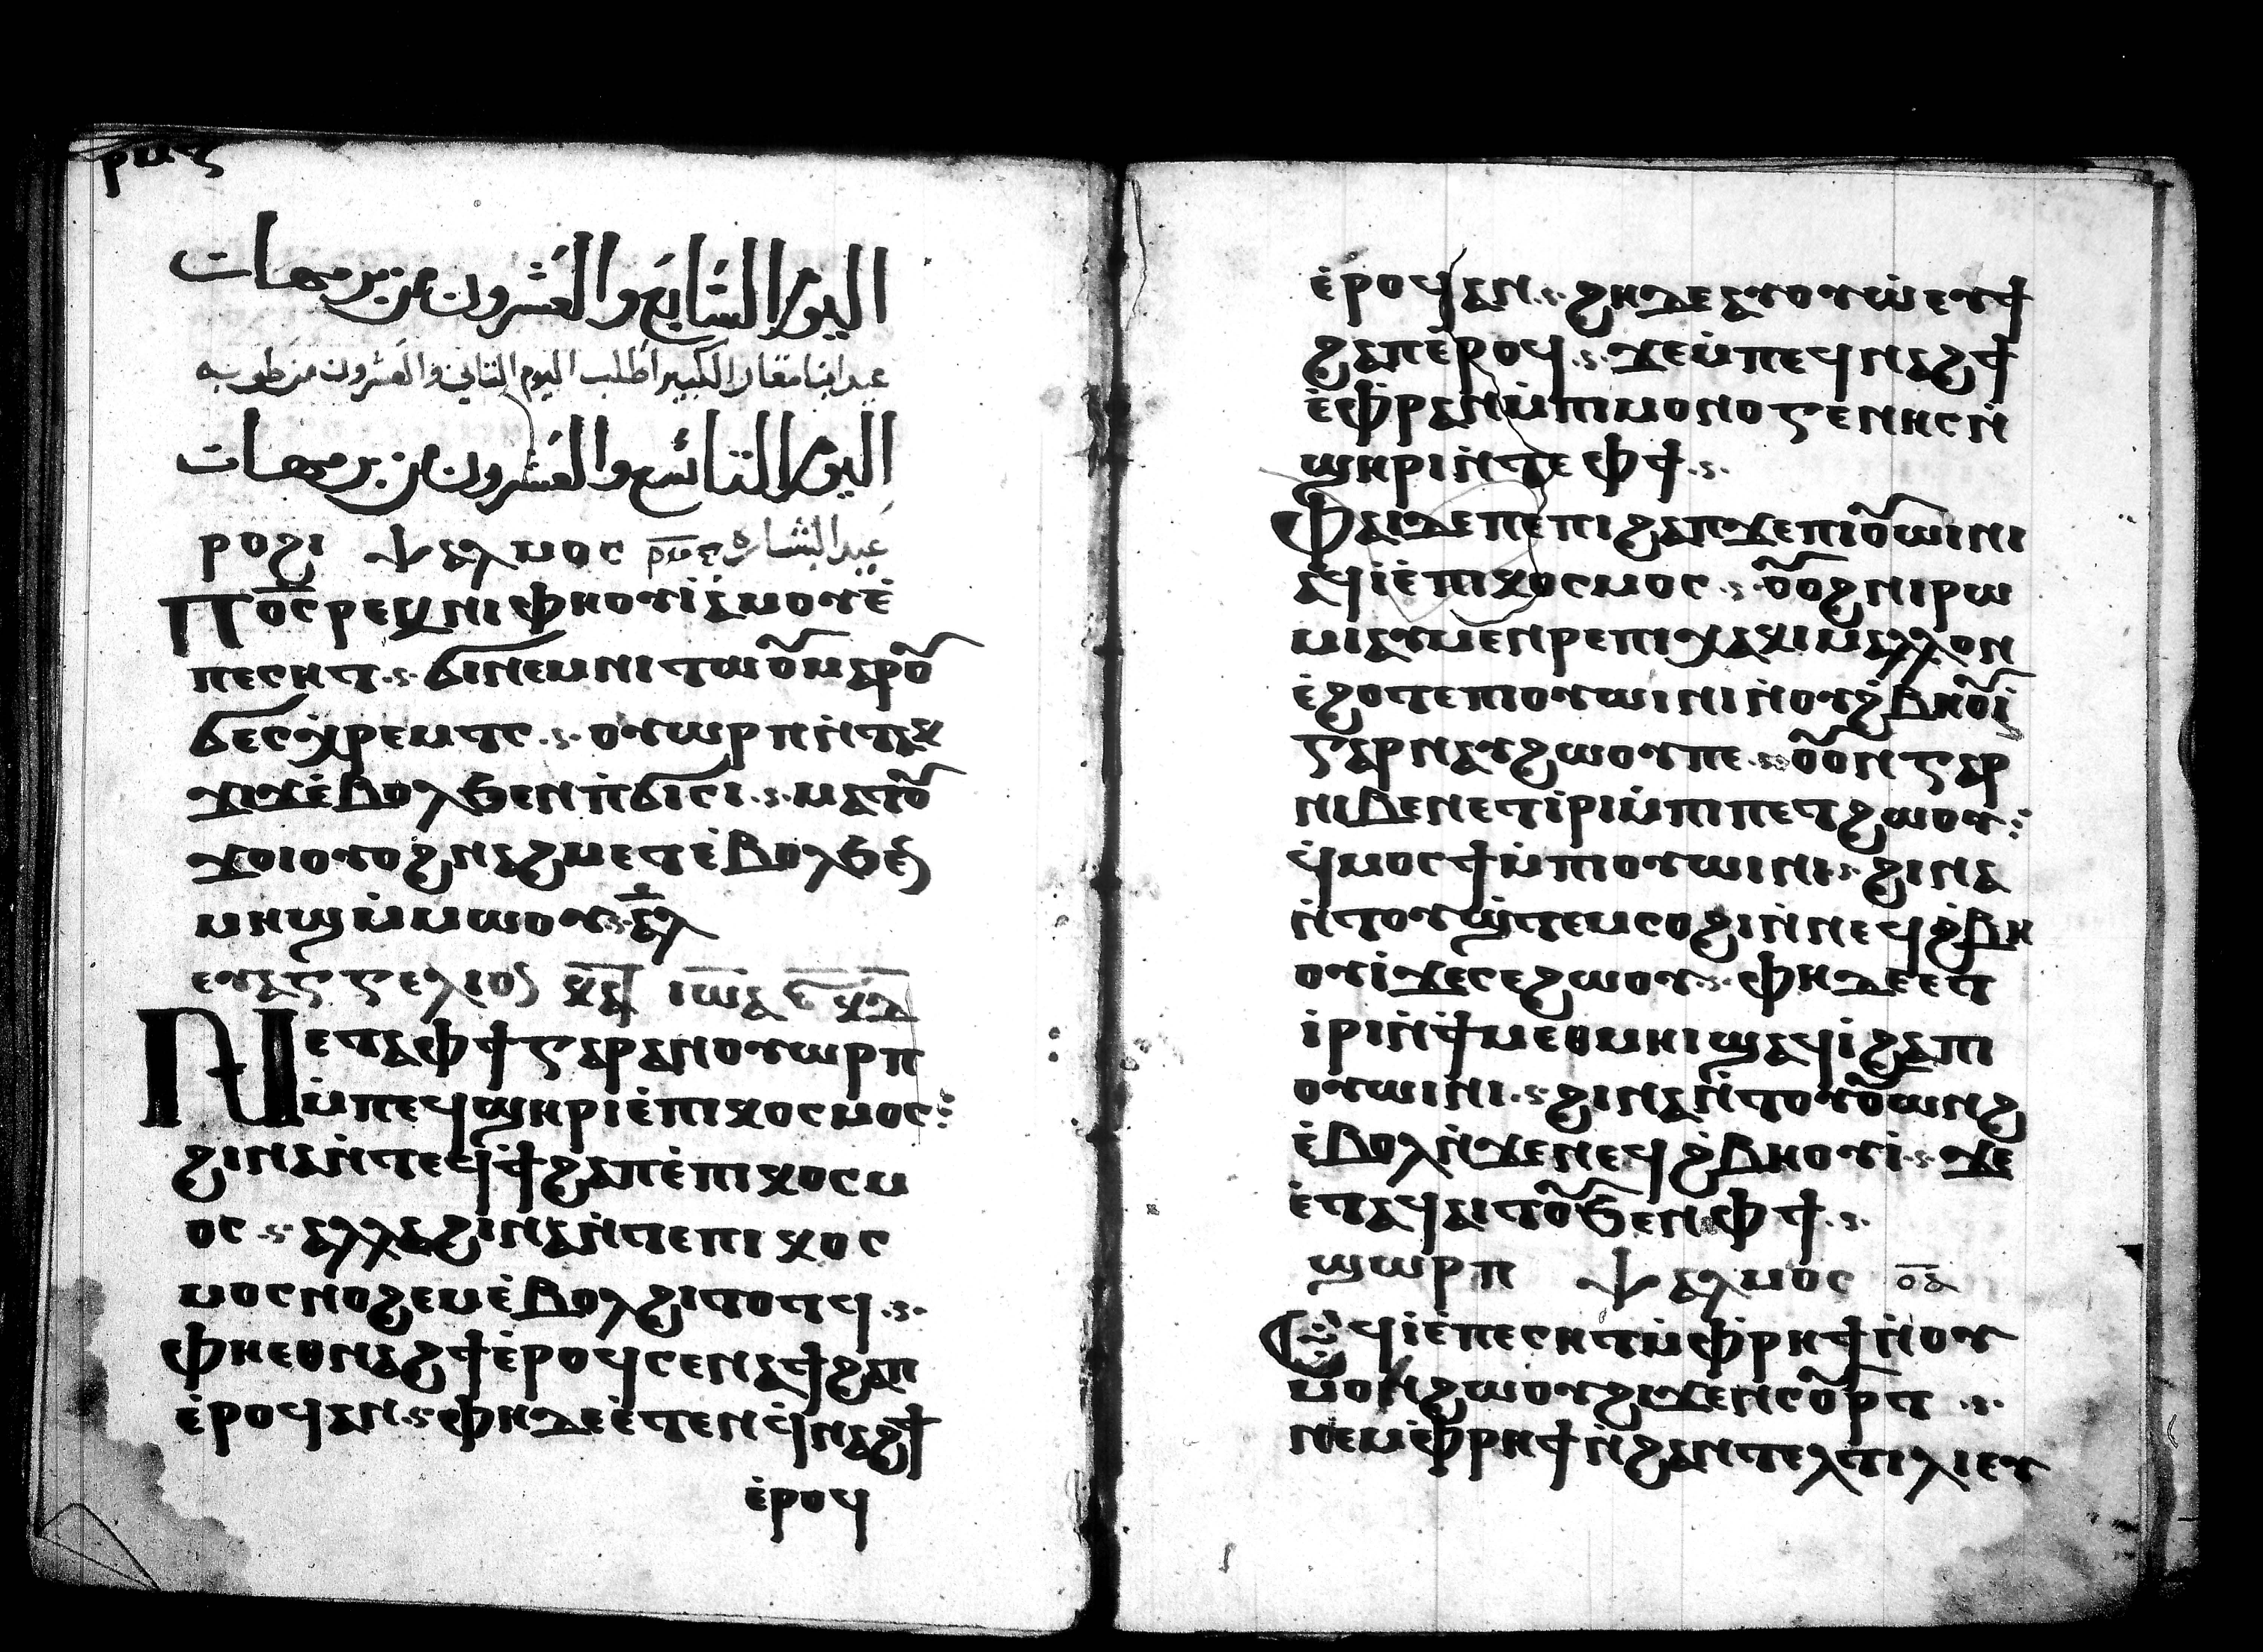 ⲣⲙⲋ
اليوم السَّابع والعشرون من برمهات
عيد ابنا مقار الكبير اطلب اليوم الثاني والعشرون من طوبه
اليوم التاسع والعشرون من برمهات
ⲣⲟϩⲓ ⲯⲁⲗⲙⲟⲥ ⲣⲙⲅ عيد البشاره
Ⲡⲟ̅ⲥ̅ⲣⲉⲕⲛⲓⲫⲏⲟⲩⲓ̀ⲁ̀ⲙⲟⲩⲉ̀
ⲡⲉⲥⲏⲧ.ⲋ. ϭⲓⲛⲉⲙⲛⲓⲧⲱⲟⲩⲙⲁⲣⲟⲩ
ϭⲉⲥⲭ̀ⲣⲉⲙⲧⲥ.ⲋ. ⲟⲩⲱⲣⲡⲛ̀ⲧⲉⲕ
ϫⲓϫⲉ̀ⲃⲟⲗϧⲉⲛⲡ̀ϭⲓⲥⲓ.ⲋ. ⲙⲁⲧⲟⲩ
ϫⲟⲓⲟⲩⲟϩⲛⲁϩⲙⲉⲧⲉ̀ⲃⲟⲗϧⲉⲛ
ⲙⲏϣⲙ̀ⲙⲱⲟⲩ.ⲋ. ⲁ̅ⲗ
ⲉⲩⲁⲅⲅⲉⲗⲓⲟⲛ ⲕⲁ ⲓⲱⲁ ⲋ ⲕⲇ
Ⲛⲉⲧⲁⲫϯⲅⲁⲣⲁⲛⲟⲩⲱⲣⲡ
ⲙ̀ⲡⲉϥϣⲏⲣⲓⲉ̀ⲡⲓⲕⲟⲥⲙⲟⲥ:
ϩⲓⲛⲁⲛ̀ⲧⲉϥϯϩⲁⲡⲉ̀ⲡⲓⲕⲟⲥⲙ
ⲟⲥ.ⲋ. ⲁⲗⲗⲁϩⲓⲛⲁⲛ̀ⲧⲉⲡⲓⲕⲟⲥ
ⲙⲟⲥⲛⲟϩⲉⲙⲉ̀ⲃⲟⲗϩⲓⲧⲟⲧϥ.ⲋ.
ⲫⲏⲉⲑⲛⲁϩϯⲉ̀ⲣⲟϥⲥⲉⲛⲁϯϩⲁⲡ
ⲉ̀ⲣⲟϥⲁⲛ.ⲋ. ⲫⲏⲇⲉⲉ̀ⲧⲉⲛϥ̀ⲛⲁϩϯ
ⲉ̀ⲣⲟϥ
ⲉ̀ⲣⲟϥⲁⲛ.ⲋ. ϩⲏⲇⲉⲁⲩⲟⲩⲱ̀ⲉⲩϯ
ϩⲁⲡⲉ̀ⲣⲟϥ.ⲋ. ϫⲉⲙ̀ⲡⲉϥⲛⲁϩϯ
ⲉ̀ⲫ̀ⲣⲁⲛⲙ̀ⲡⲓⲙⲟⲛⲟⲅⲉⲛⲏⲥⲛ̀
ϣⲏⲣⲓⲛ̀ⲧⲉⲫϯ.ⲋ.
Ⲫⲁⲓⲇⲉⲡⲉⲡⲓϩⲁⲡϫⲉⲡⲓⲟⲩⲱⲓⲛⲓ
ⲁϥⲓ̀ⲉ̀ⲡⲓⲕⲟⲥⲙⲟⲥ.ⲋ. ⲟⲩⲟϩⲛⲓⲣⲱ
ⲙⲓⲁⲩⲙⲉⲛⲣⲉⲡⲓⲭⲁⲕⲓⲙⲁⲗⲗⲟⲛ
ⲉ̀ϩⲟⲧⲉⲡⲓⲟⲩⲱⲓⲛⲓⲛ̀ⲟⲩϩ̀ⲃⲏⲟⲩⲓ̀
ⲅⲁⲣⲛⲁⲩϩⲱⲟⲩⲡⲉ.ⲋ. ⲟⲩⲟⲛⲅⲁⲣ
ⲛⲓⲃⲉⲛⲉⲧⲓ̀ⲣⲓⲙ̀ⲡⲓⲡⲉⲧϩⲱⲟⲩ:
ϥ̀ⲙⲟⲥϯⲙ̀ⲡⲓⲟⲩⲱⲓⲛⲓ.ⲋ. ϩⲓⲛⲁ
ⲛ̀ⲧⲟⲩϣ̀ⲧⲉⲙⲥⲟϩⲓⲛ̀ⲛⲉϥϩ̀ⲃⲏ
ⲟⲩⲓ̀ϫⲉⲥⲉϩⲱⲟⲩ.ⲋ. ⲫⲏⲇⲉⲉⲧ
ⲓ̀ⲣⲓⲛ̀ϯⲙⲉⲑⲙⲏⲓϣⲁϥⲓ̀ϩⲁⲡⲓ
ⲟⲩⲱⲓⲛⲓ.ⲋ. ϩⲓⲛⲁⲛ̀ⲧⲟⲩⲟⲩⲱⲛϩ
ⲉ̀ⲃⲟⲗⲛ̀ϫⲉⲛⲉϥϩ̀ⲃⲏⲟⲩⲓ̀.ⲋ. ϫⲉ
ⲉ̀ⲧⲁϥⲁⲓⲧⲟⲩϧⲉⲛⲫϯ.ⲋ.
ϣⲱⲣⲡ ⲯⲁⲗⲙⲟⲥ ⲟ̅ⲁ̅
Ⲉϥⲓ̀ⲉ̀ⲡⲉⲥⲏⲧⲙ̀ⲫ̀ⲣⲏϯⲛ̀ⲟⲩ
ⲙⲟⲩⲛϩⲱⲟⲩϩⲓϫⲉⲛⲥⲟⲩⲣⲧ.ⲋ.
ⲛⲉⲙⲙ̀ⲫⲣⲏϯⲛ̀ϩⲁⲛⲧⲉⲗⲧⲓⲗⲓⲉⲩ